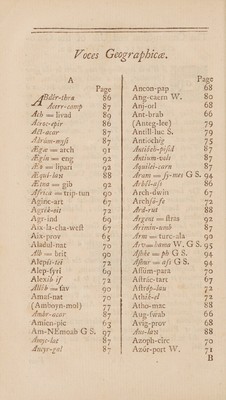 Voces Geographicæ.
A
Page
86
Acerr-comp 87
Ach = livad 89
Acroc-epir 86
Act-acar 87
Ægæ = arch 91
Ægin = eng 92
Æo = lipari 92
Æqui-lau 88
Ætna = gib 92
Africa = trip-tun 90
Aginc-art 67
Agrek-éit 72
Agr-ind 69
Aix-la-cha-west 67
Aix-prov 65
Aladul-nat 70
Alb = brit 90
Alepei-tei 72
Alep-syri 69
Alexib if 72
Allib = fav 90
Amas-nat 70
(Amboyn-mol) 77
Ambr-acar 87
Amien-pic 63
Am-NEmoab G S. 97
Amyc-lec 87
Ancyr-gal 87
Page
Ancon-pap 68
Ang-caern W. 80
Anj-orl 68
Ant-brab 66
(Anteg-lee) 79
Antill-luc S. 79
Antiochéiz 75
Antiseb-pisid 87
Antium-vols 87
Aquilei-carn 87
Aram = sj-mec G S. 94
Arbél-ass 86
Arch-dwin 67
Archsl-fe 72
Ard-rut 88
Argent = stras 92
Arimin-umb 87
Arm = turc-ala 90
Arv = hama W. G S. 95
Ashke = ph G S. 94
Ashur = assi G S. 94
Assúm-para 70
Astrác-tart 67
Astráp-lau 72
Athók-el 72
Atho-mac 88
Aug-swab 66
Avig-prov 68
Azoph-circ 70
Azór-port W. 71
B